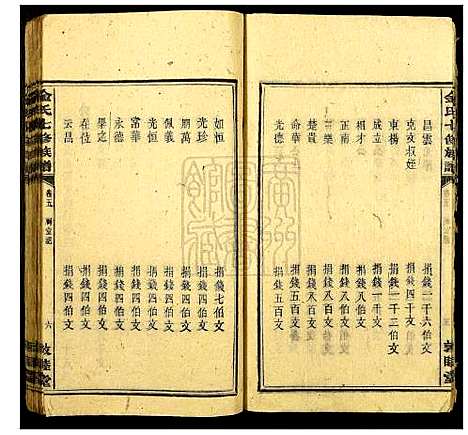 金氏七修族譜
昌雲 捐錢一千六伯文
克亥叔姪 捐錢四千文
東楊 捐錢一千二伯文
成立 捐錢一千文
相才 捐錢八伯文
正南 捐錢八伯文
樂 捐錢八百文
楚貴 捐錢八百文
命華 捐錢五百文
光德 捐錢五百文
敦睦堂
如恒 捐錢七伯文
光珍 捐錢四伯文
朋萬 捐錢四伯文
佩義 捐錢四伯文
光恒 捐錢四伯文
常華 捐錢四伯文
永德 捐錢四伯文
畢之 捐錢四伯文
在位 捐錢四伯文
云昌 捐錢四伯文
金氏七修族譜
卷五
六
敦睦堂